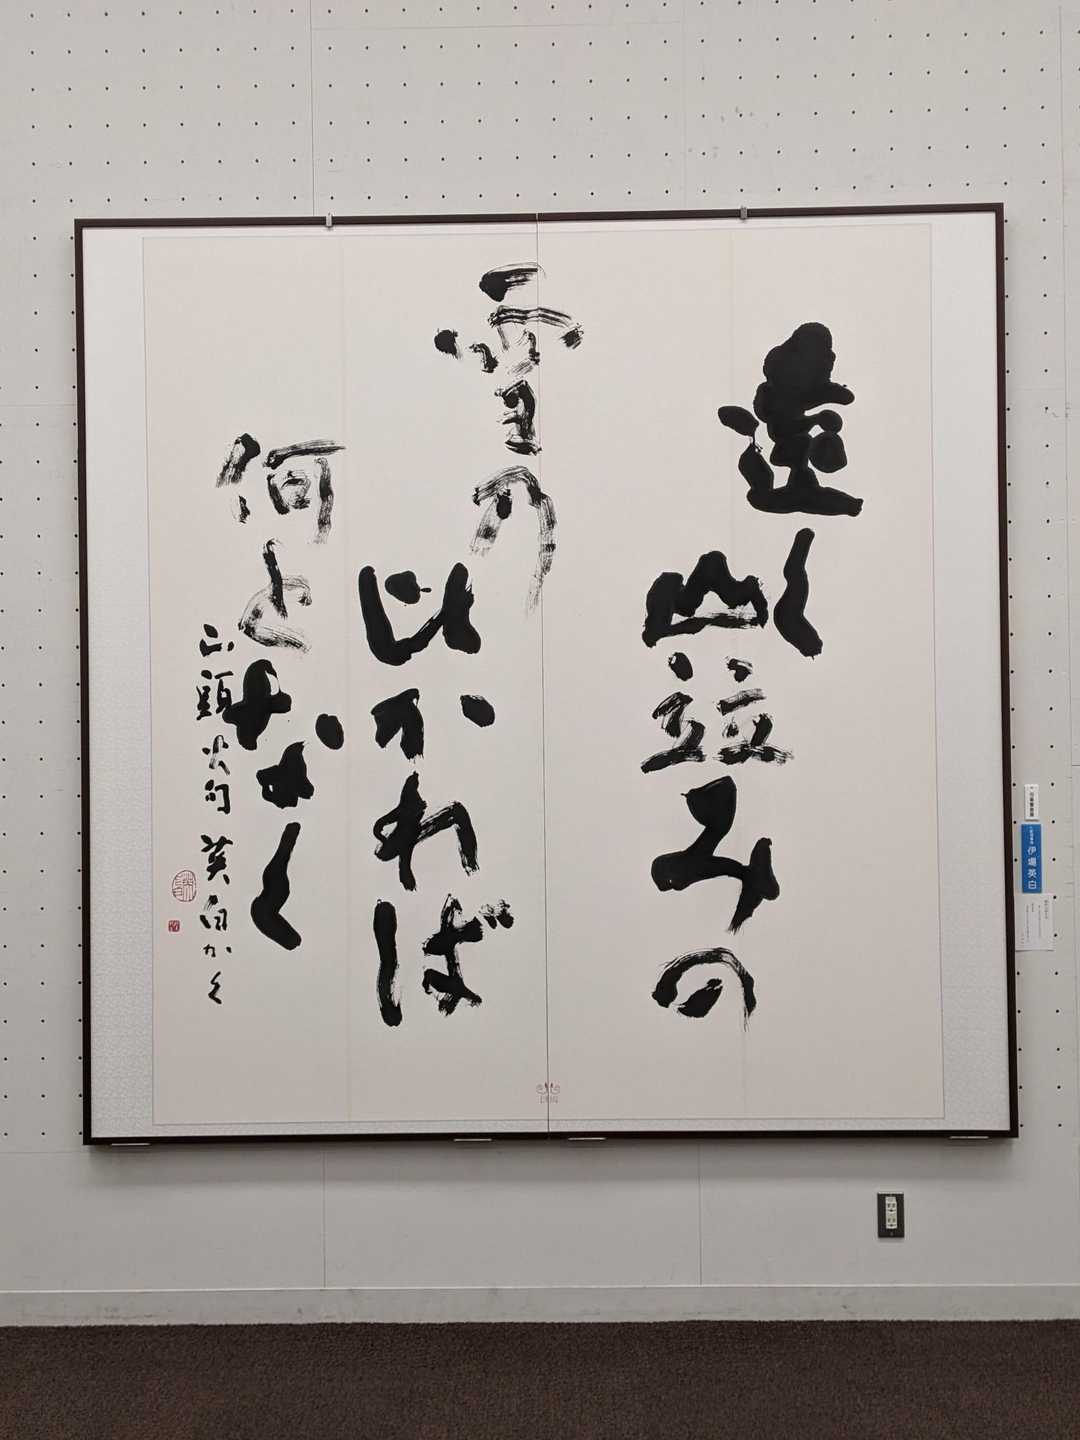 遠く
山竝みの
雪の
ひかれば
何となく
山頭火句 英白かく
伊場英白